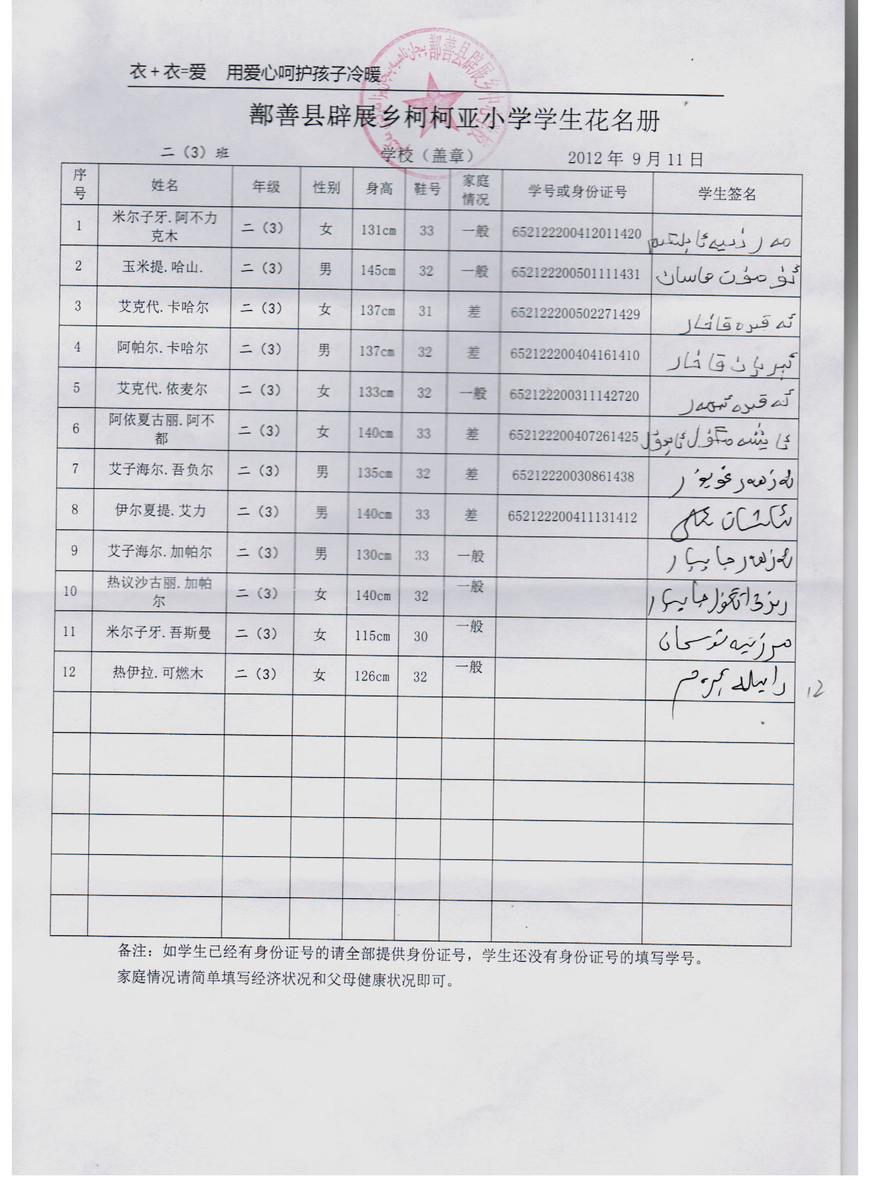 衣+衣=爱 用爱心呵护孩子冷暖
鄯善县辟展乡柯柯亚小学学生花名册
二（3）班 学校（盖章） 2012 年 9 月 11 日
序号 姓名 年级 性别 身高 鞋号 家庭情况 学号或身份证号 学生签名
1 米尔子牙.阿不力克木 二（3） 女 131cm 33 一般 652122200412011420
2 玉米提.哈山. 二（3） 男 145cm 32 一般 652122200501111431 ئۈمۈت ھاسان
3 艾克代.卡哈尔 二（3） 女 137cm 31 差 652122200502271429
4 阿帕尔.卡哈尔 二（3） 男 137cm 32 差 652122200404161410
5 艾克代.依麦尔 二（3） 女 133cm 32 一般 652122200311142720
6 阿依夏古丽.阿不都 二（3） 女 140cm 33 差 652122200407261425
7 艾子海尔.吾负尔 二（3） 男 135cm 32 差 65212220030861438
8 伊尔夏提.艾力 二（3） 男 140cm 33 差 652122200411131412
9 艾子海尔.加帕尔 二（3） 男 130cm 33 一般
10 热议沙古丽.加帕尔 二（3） 女 140cm 32 一般
11 米尔子牙.吾斯曼 二（3） 女 115cm 30 一般
12 热伊拉.可燃木 二（3） 女 126cm 32 一般
12
备注：如学生已经有身份证号的请全部提供身份证号，学生还没有身份证号的填写学号。
家庭情况请简单填写经济状况和父母健康状况即可。